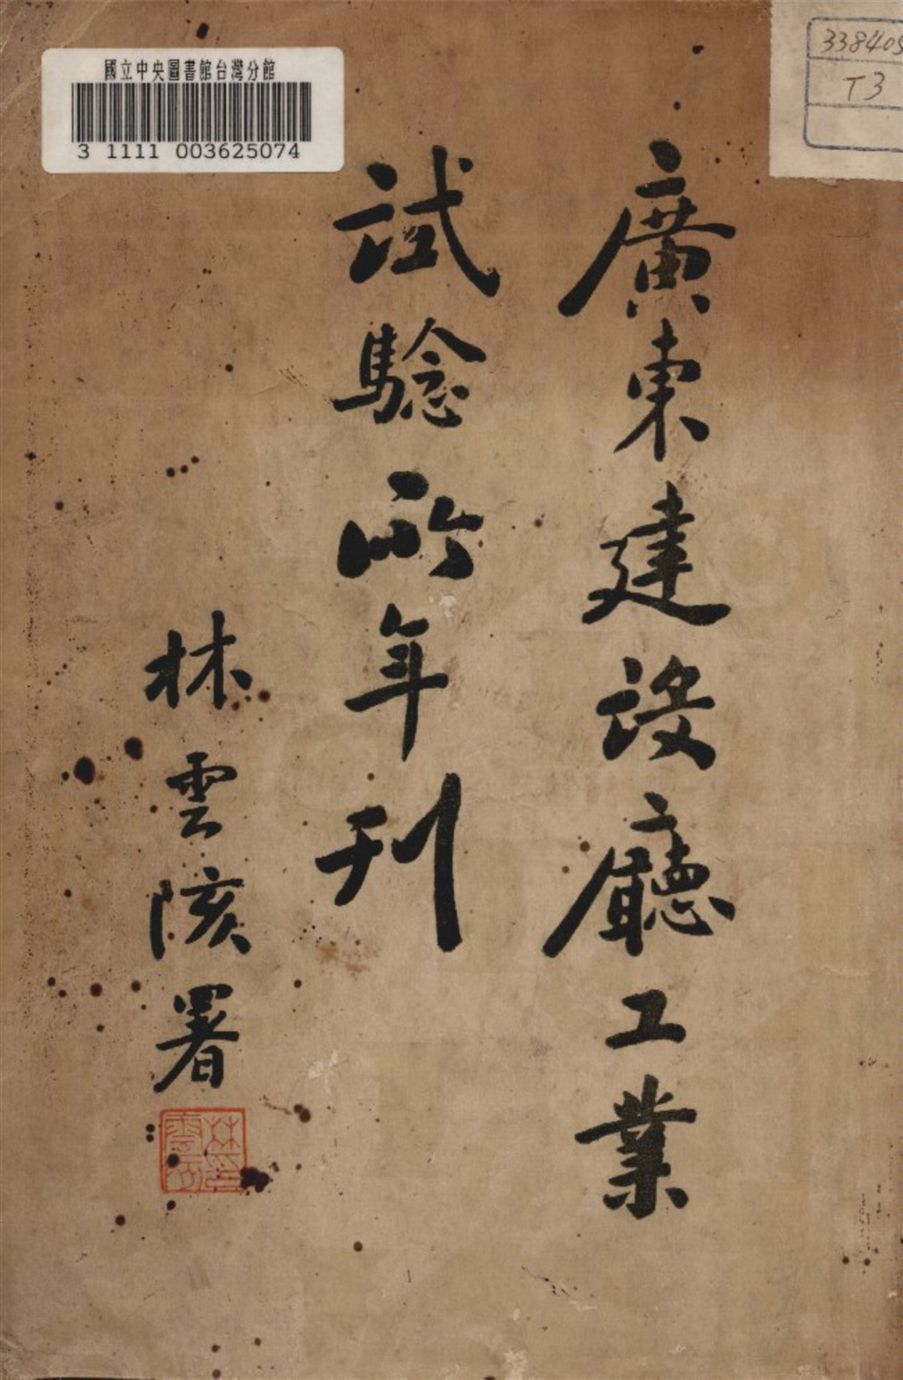 國立中央圖書館台灣分館
3 1111 003625074
338405
T3
廣東建設廳工業
試驗所年刊
林雲陔署